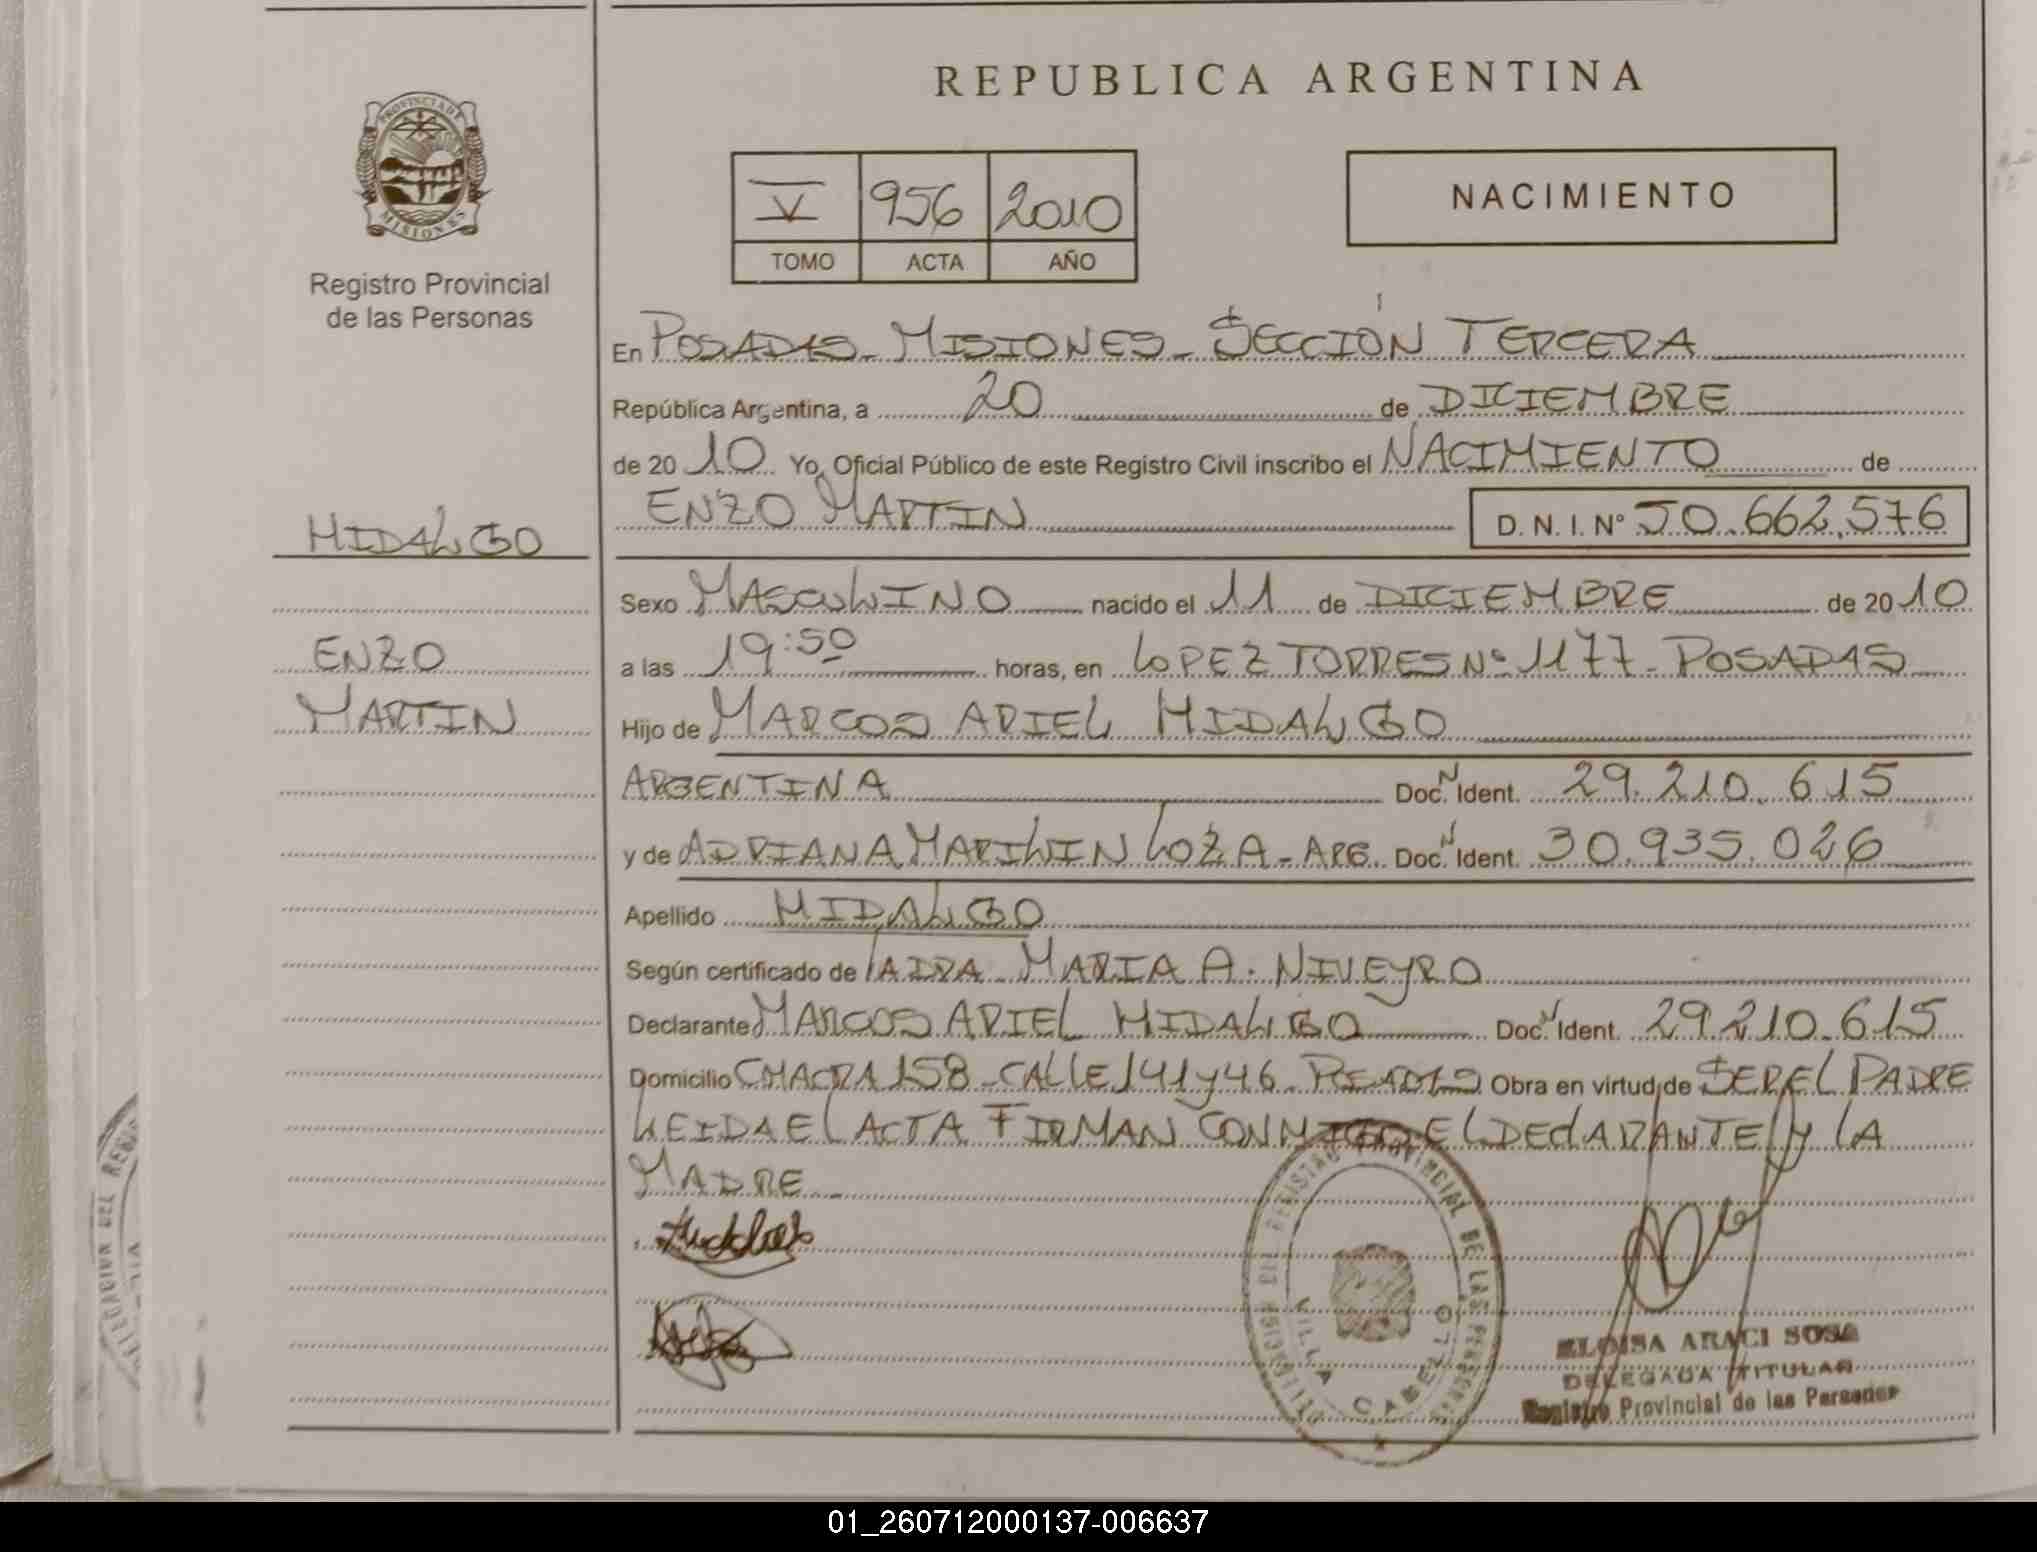 REPUBLICA ARGENTINA
PROVINCIA DE
MISIONES
Registro Provincial
de las Personas
V 956 2010
TOMO ACTA AÑO
NACIMIENTO
En POSADAS - MISIONES - SECCIÓN TERCERA
República Argentina, a 20 de DICIEMBRE
de 20 10 Yo, Oficial Público de este Registro Civil inscribo el NACIMIENTO de
ENZO MARTIN D. N. I. N° 50.662.576
HIDALGO
ENZO
MARTIN
Sexo MASCULINO nacido el 11 de DICIEMBRE de 20 10
a las 19:50 horas, en LOPEZ TORRES Nº 1177 - POSADAS
Hijo de MARCOS ARIEL HIDALGO
ARGENTINA Doc. N Ident. 29.210.615
y de ADRIANA MARILIN LOZA - ARG. Doc. N Ident. 30.935.026
Apellido HIDALGO
Según certificado de MARIA A. NIVEYRO
Declarante MARCOS ARIEL HIDALGO Doc. N Ident. 29.210.615
Domicilio CHACRA 158 - CALLE 141 y 46 - POSADAS Obra en virtud de SER EL PADRE
LEIDA EL ACTA FIRMAN CONMIGO EL DECLARANTE Y LA
MADRE -
DELEGACION DEL REGISTRO PROVINCIAL DE LAS PERSONAS
VILLA CABELLO
ELOISA ARACI SOSA
DELEGADA TITULAR
Registro Provincial de las Personas
DELEGACION DEL
01_260712000137-006637